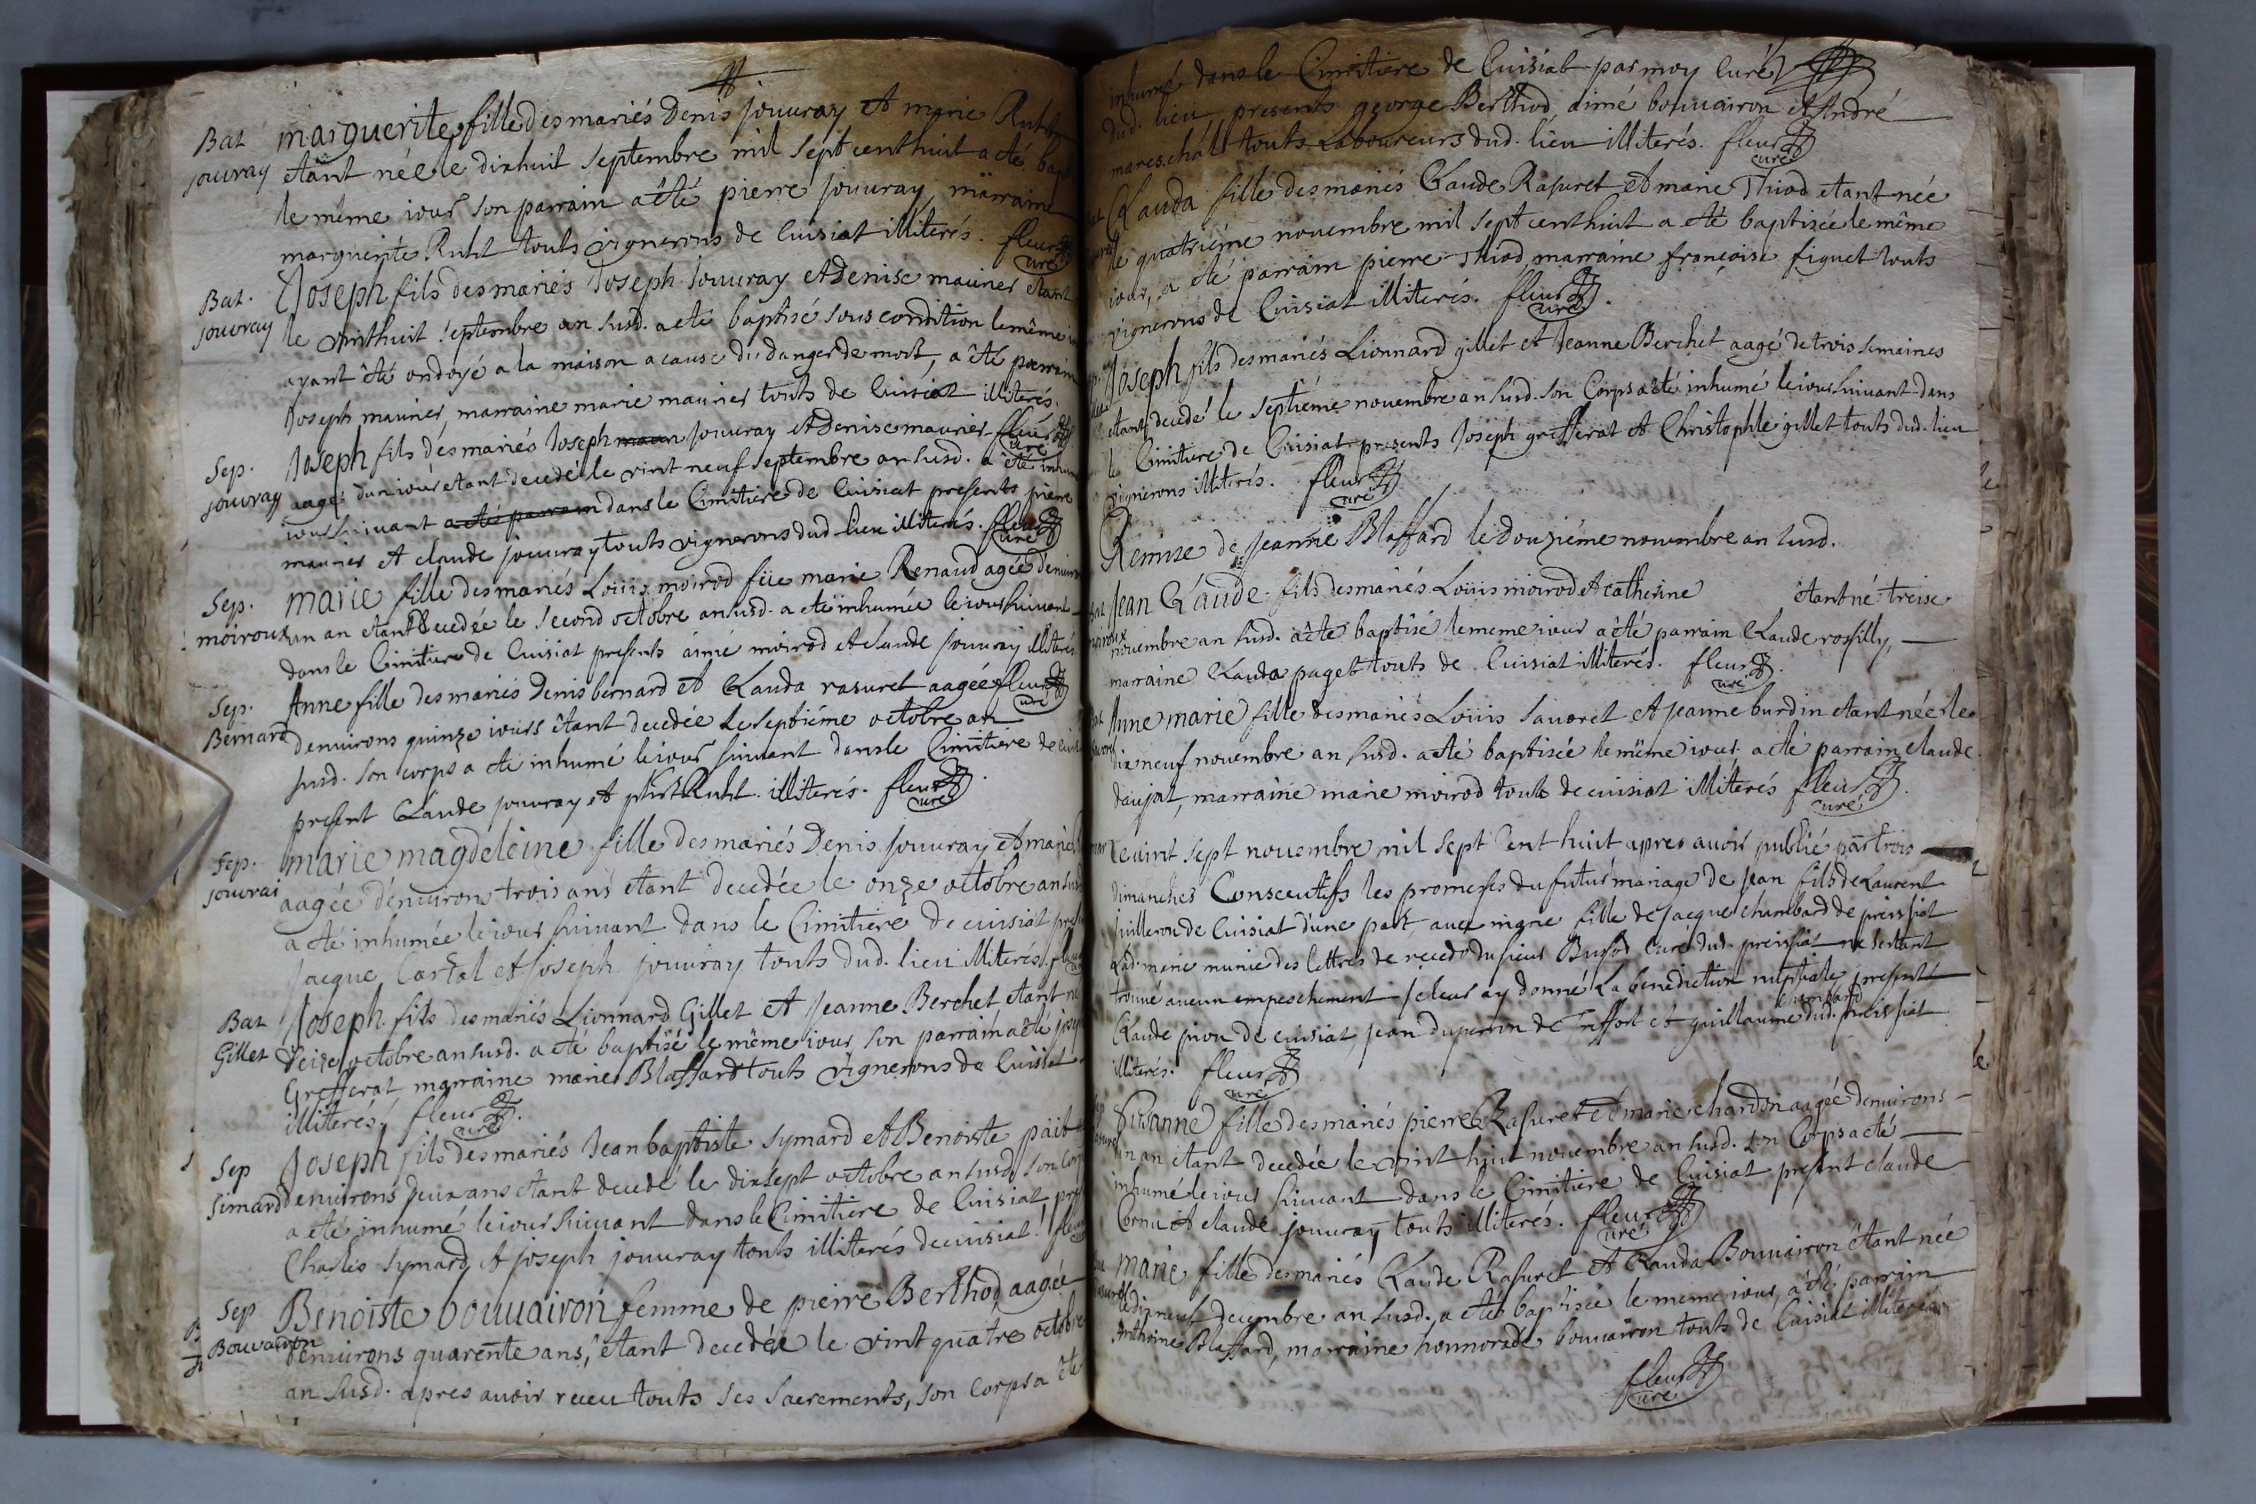 Bat
jouvray
marguerite fille des mariés Denis jouvray et marie Ruht
etant née le dixhuit septembre mil sept cent huit a eté bap
le même iour son parrain a êté pierre jouvray, marraine
marguerite Ruht touts vignerons de Cuisiat illiterés. fleur
curé
Bat.
jouvray
Joseph fils des mariés Joseph jouvray et Denise maurier etant
le vinthuit septembre an susd. a eté baptisé sous condition le même
ayant êté ondoyé a la maison a cause du danger de mort, a êté parrain
Joseph maurier, marraine marie maurier touts de Cuisiat illiterés.
fleur
curé
Sep.
jouvray
Joseph fils des mariés Joseph jouvray et Denise maurier
aagé d'un iour etant decedé le vint neuf septembre an susd. a êté inhumé
iour suivant a eté parrain dans le Cimitiere de Cuisiat presents pierre
maurier et claude jouvray touts vignerons dud. lieu illiterés. fleur
curé
Sep.
moiroux
marie fille des mariés Loüis moirod füe marie Renaud agée d'enuiron
un an etant decedée le second octobre an susd. a eté inhumée le iour suivant
dans le Cimitiere de Cuisiat presents aimé moirod et claude jouvray illiterés
fleur
curé
Sep.
Bernard
Anne fille des mariés Denis bernard et Clauda rasuret aagée
d'enuirons quinze iours êtant decedée le septiéme octobre an
susd. son corps a eté inhumé le iour suivant dans le Cimitiere de
present Claude jouvray et Ruht illiterés. fleur
curé
Sep.
jouvrai
marie magdeleine fille des mariés Denis jouvray et marie
aagée d'enuirons trois ans etant decedée le onze octobre an susd
a eté inhumée le iour suivant dans le Cimitiere de cuisiat
Jacque Cartal et Joseph jouvray touts dud. lieu illiterés.
Bat
Gillet
Joseph fils des mariés Lionnard Gillet et Jeanne Berchet etant
octobre an susd. a eté baptisé le même iour, son parrain a eté
Grefferat, marraine marie Blaffard touts vignerons de Cuisiat
illiterés, fleur
curé
Sep
Simard
Joseph fils des mariés Jean baptiste symard et Benoiste
d'enuirons deux ans etant decedé le dixsept octobre an susd, son corps
a eté inhumé le iour suivant dans le Cimitiere de Cuisiat
Charles symard, et joseph jouvray touts illiterés de cuisiat.
Sep
Bouvairon
Benoiste bouvairon femme de pierre Berthod, aagée
d'enuirons quarente ans, êtant decedée le vint quatre octobre
an susd. apres avoir receu touts ses sacrements, son corps a eté
inhumé dans le Cimitiere de Cuisiat par moy curé
dud. lieu presents george Berthod aimé bouvairon et André
mareschâl touts Laboureurs dud. lieu illiterés. fleur
curé
Clauda fille des mariés Claude Rasuret et marie Thiod etant née
le quatriéme novembre mil sept cent huit a eté baptisée le même
iour, a eté parrain pierre Thiod, marraine françoise figuet touts
vignerons de Cuisiat illiterés. fleur
curé
Joseph fils des mariés Lionnard gillet et Jeanne Berchet aagé de trois semaines
etant decedé le septiéme novembre an susd. son Corps a eté inhumé le iour suivant dans
le Cimitiere de Cuisiat presents Joseph grefferat et Christophle gillet touts dud. lieu
vignerons illiterés. fleur
curé
Remise de Jeanne Blaffard le douziéme novembre an susd.
Jean Claude fils des mariés Loüis moirod et catherine etant né treise
novembre an susd. a êté baptisé le meme iour a êté parrain Claude rossilly,
marraine Clauda paget touts de Cuisiat illiterés. fleur
curé
Anne marie fille des mariés Loüis savoret et jeanne burdin etant née le
dix neuf novembre an susd. a eté baptisée le même iour. a eté parrain claude
daujat, marraine marie moirod touts de cuisiat illiterés fleur
curé
Le vint sept novembre mil sept cent huit apres avoir publié par trois
dimanches Consecutifs les promesses du futur mariage de jean fils de Laurent
juilleron de Cuisiat d'une part, avec marie fille de jacque chambard de preissiat
Lad. marie munie des lettres de recedo du sieur Curé dud. preissiat ne sestant
trouvé aucun empeschement je leur ay donné la benediction nuptiale, presents
Claude piron de cuisiat, jean duperron de Treffort et guillaume chambard dud. preissiat
illiterés. fleur
curé
Susanne fille des mariés pierre Rasuret et marie chardon aagée d'enuirons
un an etant decedée le vint huit novembre an susd. son Corps a eté
inhumé le iour suivant dans le Cimitiere de Cuisiat present claude
Cornu et claude jouvray touts illiterés. fleur
curé
marie fille des mariés Claude Rasuret et Clauda Bouvairon êtant née
le dix neuf decembre an susd. a eté baptisée le meme iour, a êté parrain
Anthoine Blaffard, marraine honnorade bouvairon touts de Cuisiat illiterés
fleur
curé